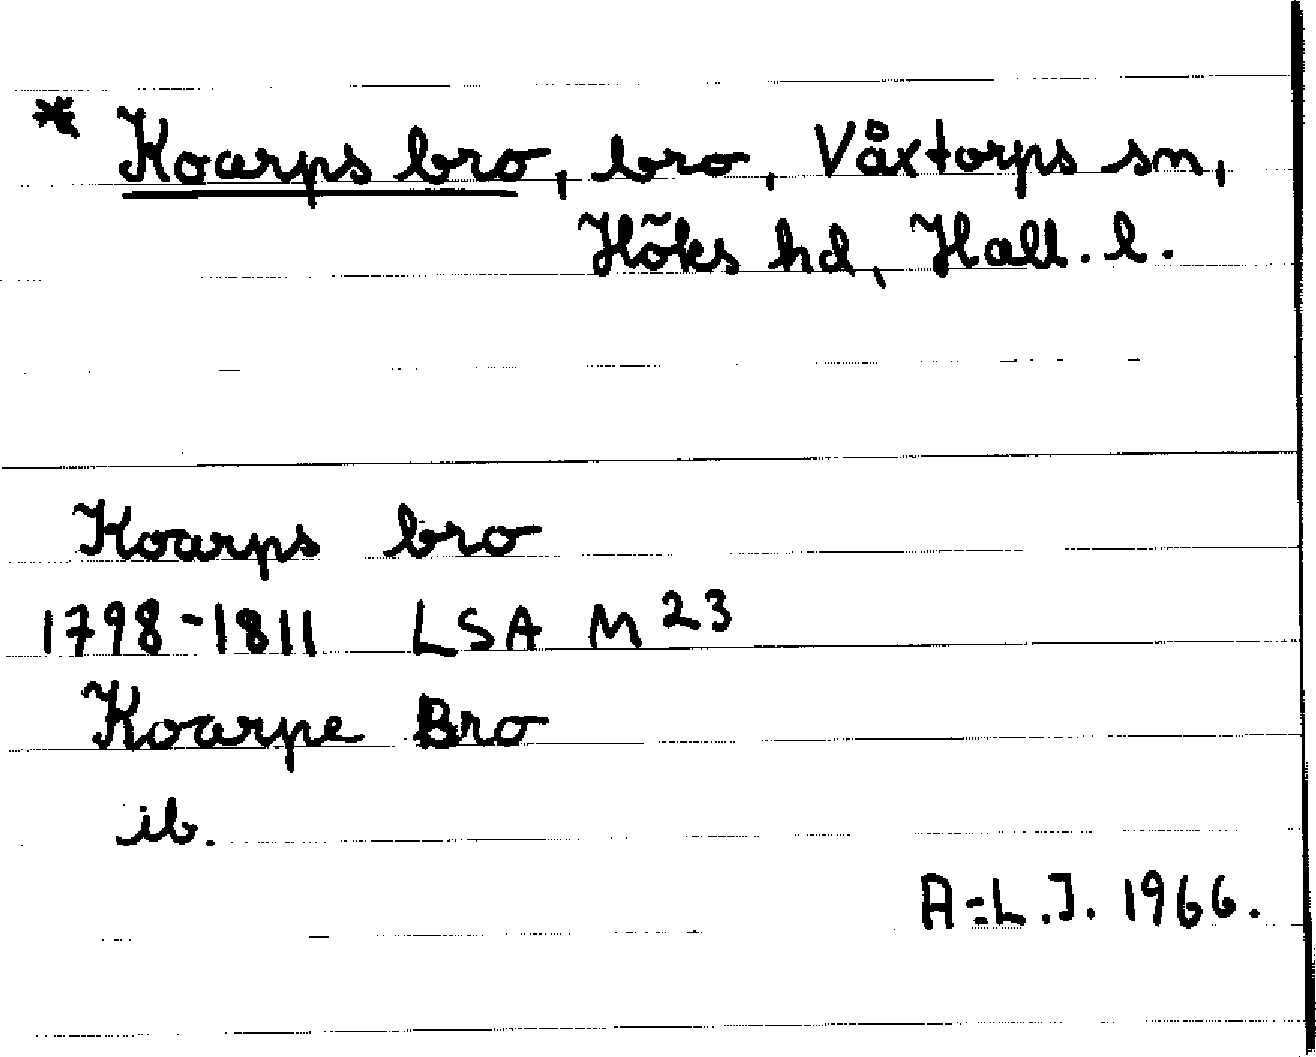 * Koarps bro, bro, Våxtorps sn,
Höks hd, Hall. l.
Koarps bro
1798-1811 LSA M 23
Koarpe Bro
ib.
A-L.J. 1966.